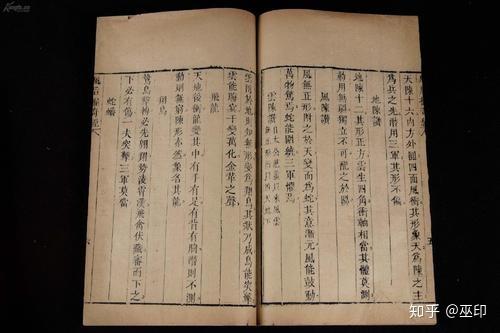 天陣十六内方外圓四面風衝其形象天為陣之主
為兵之先善用三軍其形不偏
地陣讚
地陣十二其形正方雲生四角衝軸相當其體莫測
動用無疆獨立不可配之於陽
風陣讚
風無正形附之於天變而為蛇其意漸元風能鼓動
萬物驚焉蛇能圍繞三軍懼焉
雲陣讚
雲附於地則知無形變為翔鳥其狀乃成鳥能突擊
雲能晦異千變萬化金革之聲
飛龍
天地後衝龍變其中有手有足有背有胸潛則不測
動則無窮陣形亦然象名其龍
翔鳥
鷙鳥擊搏必先翱翔勢凌霄漢飛禽伏藏審而下之
下必有傷一夫突擊三軍莫當
蛇蟠
知乎 @巫印